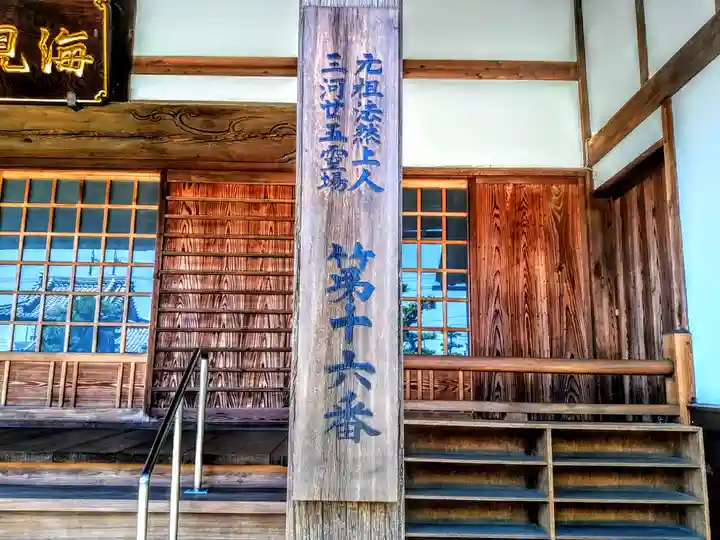 海見
元祖法然上人
三河廿五霊場
第十六番